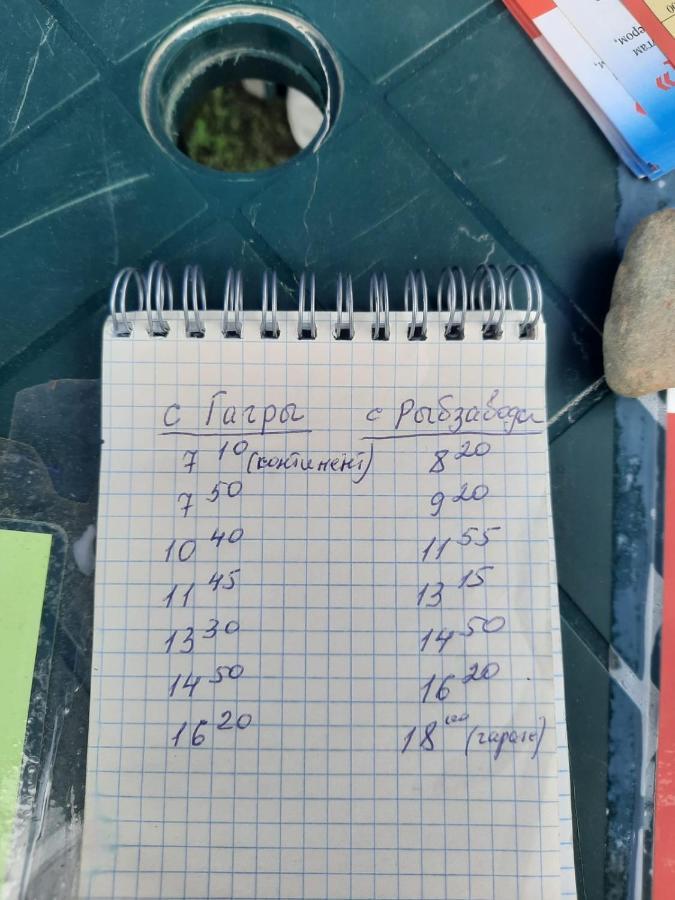 там
ером,
м,
с Гагры с Рыбзавода
7 10 (континент) 8 20
7 50 9 20
10 40 11 55
11 45 13 15
13 30 14 50
14 50 16 20
16 20 18 00 (гараж)